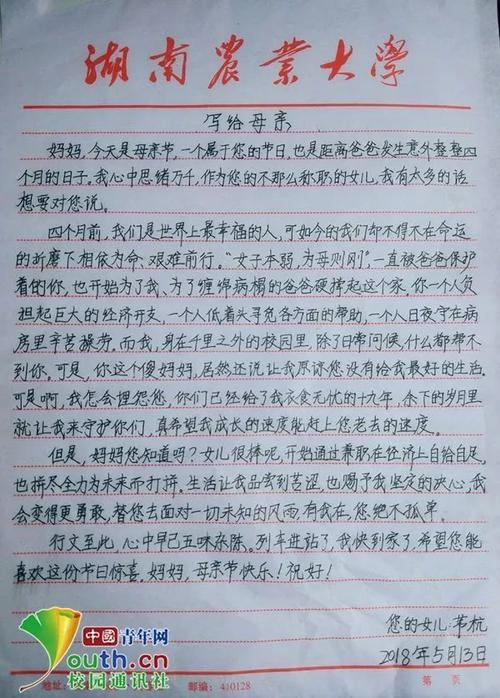 湖南农业大学
写给母亲
妈妈,今天是母亲节,一个属于您的节日,也是距离爸爸发生意外整整四
个月的日子。我心中思绪万千,作为您的不那么称职的女儿,我有太多的话
想要对您说。
四个月前,我们是世界上最幸福的人,可如今的我们却不得不在命运
的折磨下相依为命、艰难前行。“女子本弱,为母则刚”,一直被爸爸保护
着的你,也开始为了我、为了缠绵病榻的爸爸硬撑起这个家。你一个人负
担起巨大的经济开支,一个人低着头寻觅各方面的帮助,一个人日夜守在病
房里辛苦操劳。而我,身在千里之外的校园里,除了日常问候,什么都帮不
到你。可是,你这个傻妈妈,居然还说让我原谅您没有给我最好的生活。
可是啊,我怎会埋怨您,你们已经给了我衣食无忧的十九年,余下的岁月里
就让我来守护你们,真希望我成长的速度能赶上您老去的速度。
但是,妈妈您知道吗?女儿很棒呢,开始通过兼职在经济上自给自足,
也拼尽全力为未来而打拼。生活让我品尝到苦涩,也赐予我坚定的决心,我
会变得更勇敢,替您去面对一切未知的风雨,有我在,您绝不孤单。
行文至此,心中早已五味杂陈。列车进站了,我快到家了,希望您能
喜欢这份节日惊喜,妈妈,母亲节快乐!祝好!
您的女儿:苇杭
2018年5月13日
中國青年网
Youth.cn
校园通讯社
地址:
邮编:410128
第 页